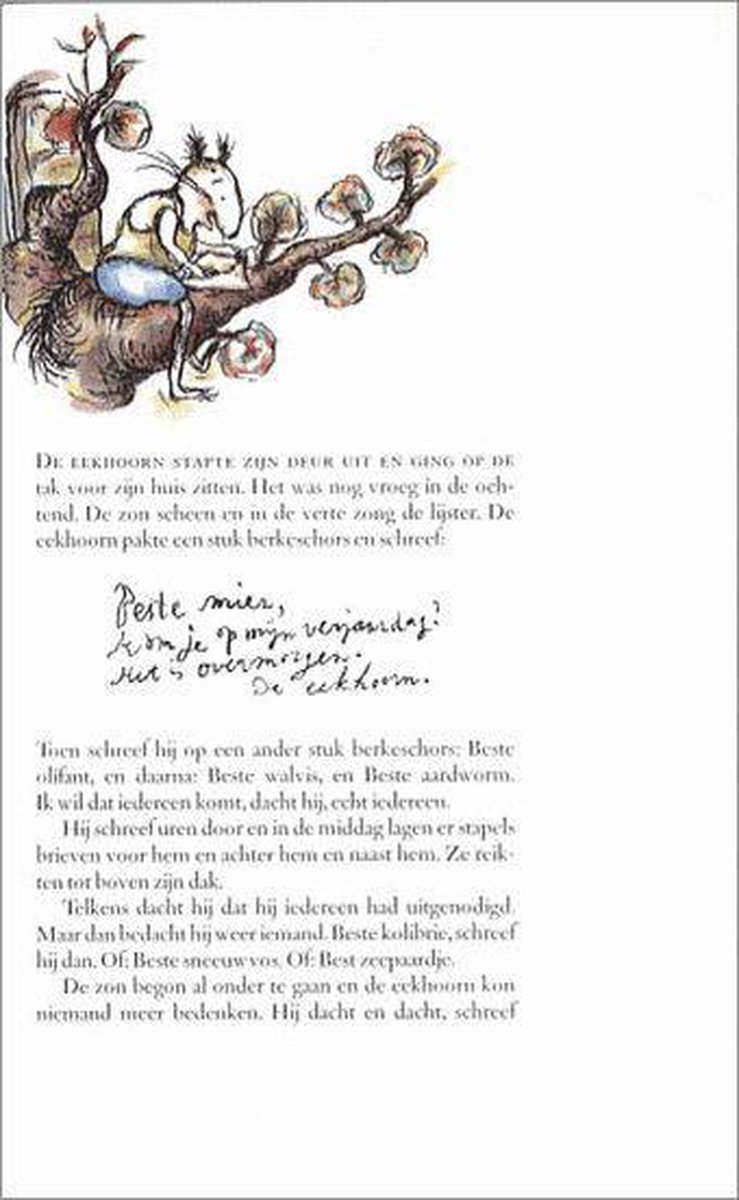 DE EEKHOORN STAPTE ZIJN DEUR UIT EN GING OP DE
tak voor zijn huis zitten. Het was nog vroeg in de och-
tend. De zon scheen en in de verte zong de lijster. De
eekhoorn pakte een stuk berkeschors en schreef:
Beste mier,
Kom je op mijn verjaardag?
Het is overmorgen.
De eekhoorn.
Toen schreef hij op een ander stuk berkeschors: Beste
olifant, en daarna: Beste walvis, en Beste aardworm.
Ik wil dat iedereen komt, dacht hij, echt iedereen.
Hij schreef uren door en in de middag lagen er stapels
brieven voor hem en achter hem en naast hem. Ze reik-
ten tot boven zijn dak.
Telkens dacht hij dat hij iedereen had uitgenodigd.
Maar dan bedacht hij weer iemand. Beste kolibrie, schreef
hij dan. Of: Beste sneeuwvos. Of: Best zeepaardje.
De zon begon al onder te gaan en de eekhoorn kon
niemand meer bedenken. Hij dacht en dacht, schreef